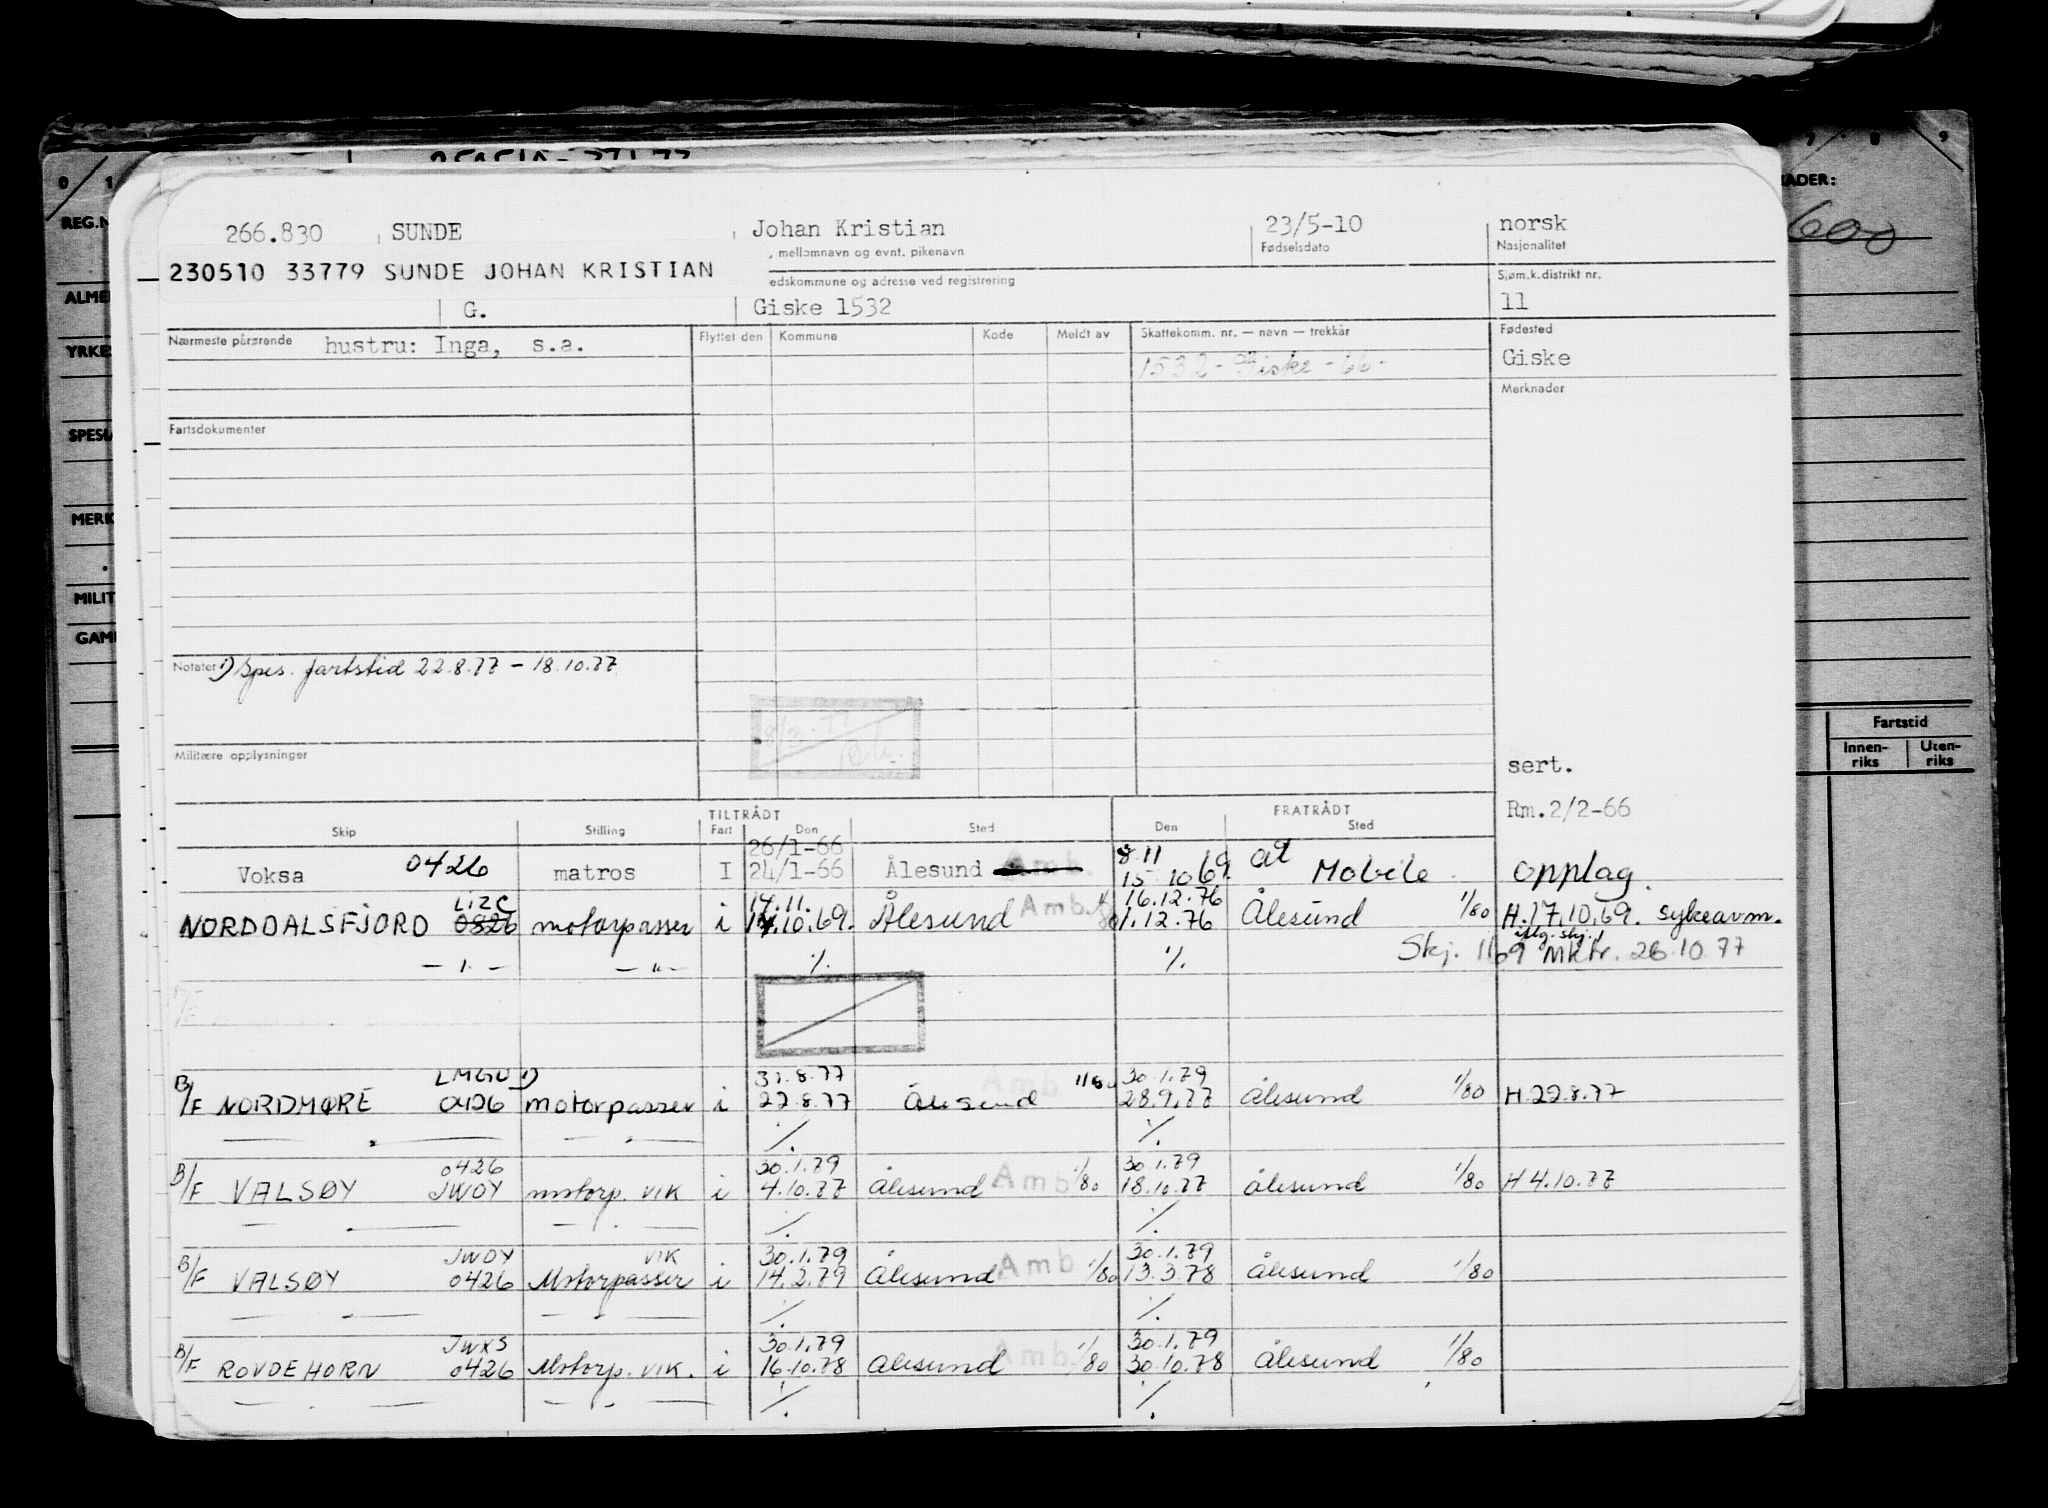 0 1
7 8 9
REG.N
ADER:
600
266.830 SUNDE Johan Kristian 23/5-10 norsk
, mellomnavn og evnt. pikenavn Fødselsdato Nasjonalitet
230510 33779 SUNDE JOHAN KRISTIAN
edskommune og adresse ved registrering Sjøm.k.distrikt nr.
G. Giske 1532 11
Nærmeste pårørende hustru: Inga, s.a. Flyttet den Kommune Kode Meldt av Skattekomm. nr. — navn — trekkår Fødested
1532 - Giske - 66 - Giske
Merknader
Fartsdokumenter
ALME
YRKE
SPESI
MERK
MILIT
GAM
Notater 1) Spes. fartstid 22.8.77 - 18.10.77
8/3.79
Militære opplysninger
sert.
Rm.2/2-66
Fartstid
Innen-riks Uten-riks
TILTRÅDT FRATRÅDT
Skip Stilling Fart Den Sted Den Sted
26/1-66 8.11
Voksa 0426 matros I 24/1-66 Ålesund Amb. 15.10 69. at Mobile opplag.
LIZC 17.11. 16.12.76
NORDDALSFJORD 0826 motorpasser i 14.10.69. Ålesund Amb. 1/80 1.12.76 Ålesund 1/80 H.17.10.69. sykeavm.
— " — — " — % % Skj. 1169 iflg. skj. Mktr. 26.10.77
LMGU 1) 31.8.77 30.1.79
B/F NORDMØRE 0426 motorpasser i 22.8.77 Ålesund Amb 1/80 28.9.77 Ålesund 1/80 H.22.8.77
— " — — " — % %
0426 30.1.79 30.1.79
B/F VALSØY JWOY motorp. VIK i 4.10.77 Ålesund Amb 1/80 18.10.77 Ålesund 1/80 H 4.10.77
— " — — " — % %
JWOY VIK 30.1.79 30.1.79
B/F VALSØY 0426 Motorpasser i 14.2.79 Ålesund Amb 1/80 13.3.78 Ålesund 1/80
— " — — " — % %
JWXS 30.1.79 30.1.79
B/F ROVDEHORN 0426 Motorp. VIK. i 16.10.78 Ålesund Amb. 1/80 30.10.78 Ålesund 1/80
— " — — " — % %